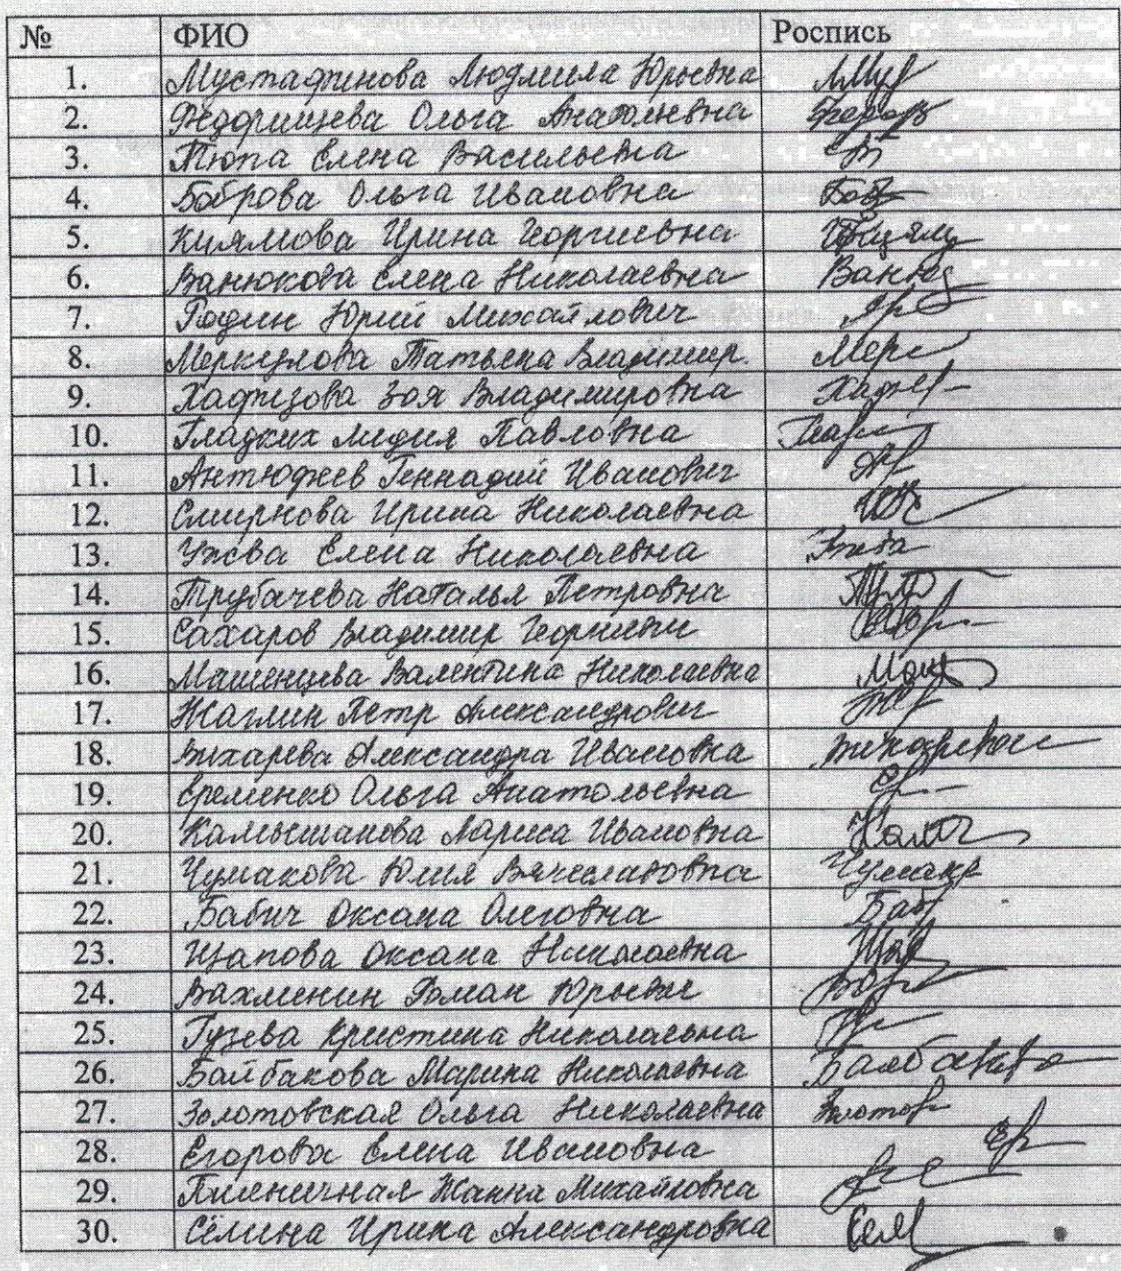 № ФИО Роспись
1. Мустафинова Людмила Юрьевна
2. Федорищева Ольга Анатольевна
3. Тюпа Елена Васильевна
4. Боброва Ольга Ивановна
5. Киямова Ирина Георгиевна
6. Ванюкова Елена Николаевна Ванюк
7. Родин Юрий Михайлович
8. Меркулова Татьяна Владимир. Мерк
9. Хафизова Зоя Владимировна
10. Гладких Лидия Павловна
11. Антюфеев Геннадий Иванович
12. Смирнова Ирина Николаевна
13. Ужева Елена Николаевна
14. Трубачева Наталья Петровна
15. Сахаров Владимир Георгиевич
16. Машенцева Валентина Николаевна Маш
17. Жаглин Петр Александрович
18. Вихарева Александра Ивановна
19. Еременко Ольга Анатольевна
20. Камышанова Лариса Ивановна
21. Чумакова Юлия Вячеславовна Чумак
22. Бабич Оксана Олеговна Баб
23. Щапова Оксана Николаевна
24. Вахменин Роман Юрьевич
25. Гузева Кристина Николаевна
26. Байбакова Марина Николаевна Байбакова
27. Золотовская Ольга Николаевна
28. Егорова Елена Ивановна
29. Пшеничная Жанна Михайловна
30. Сёлина Ирина Александровна